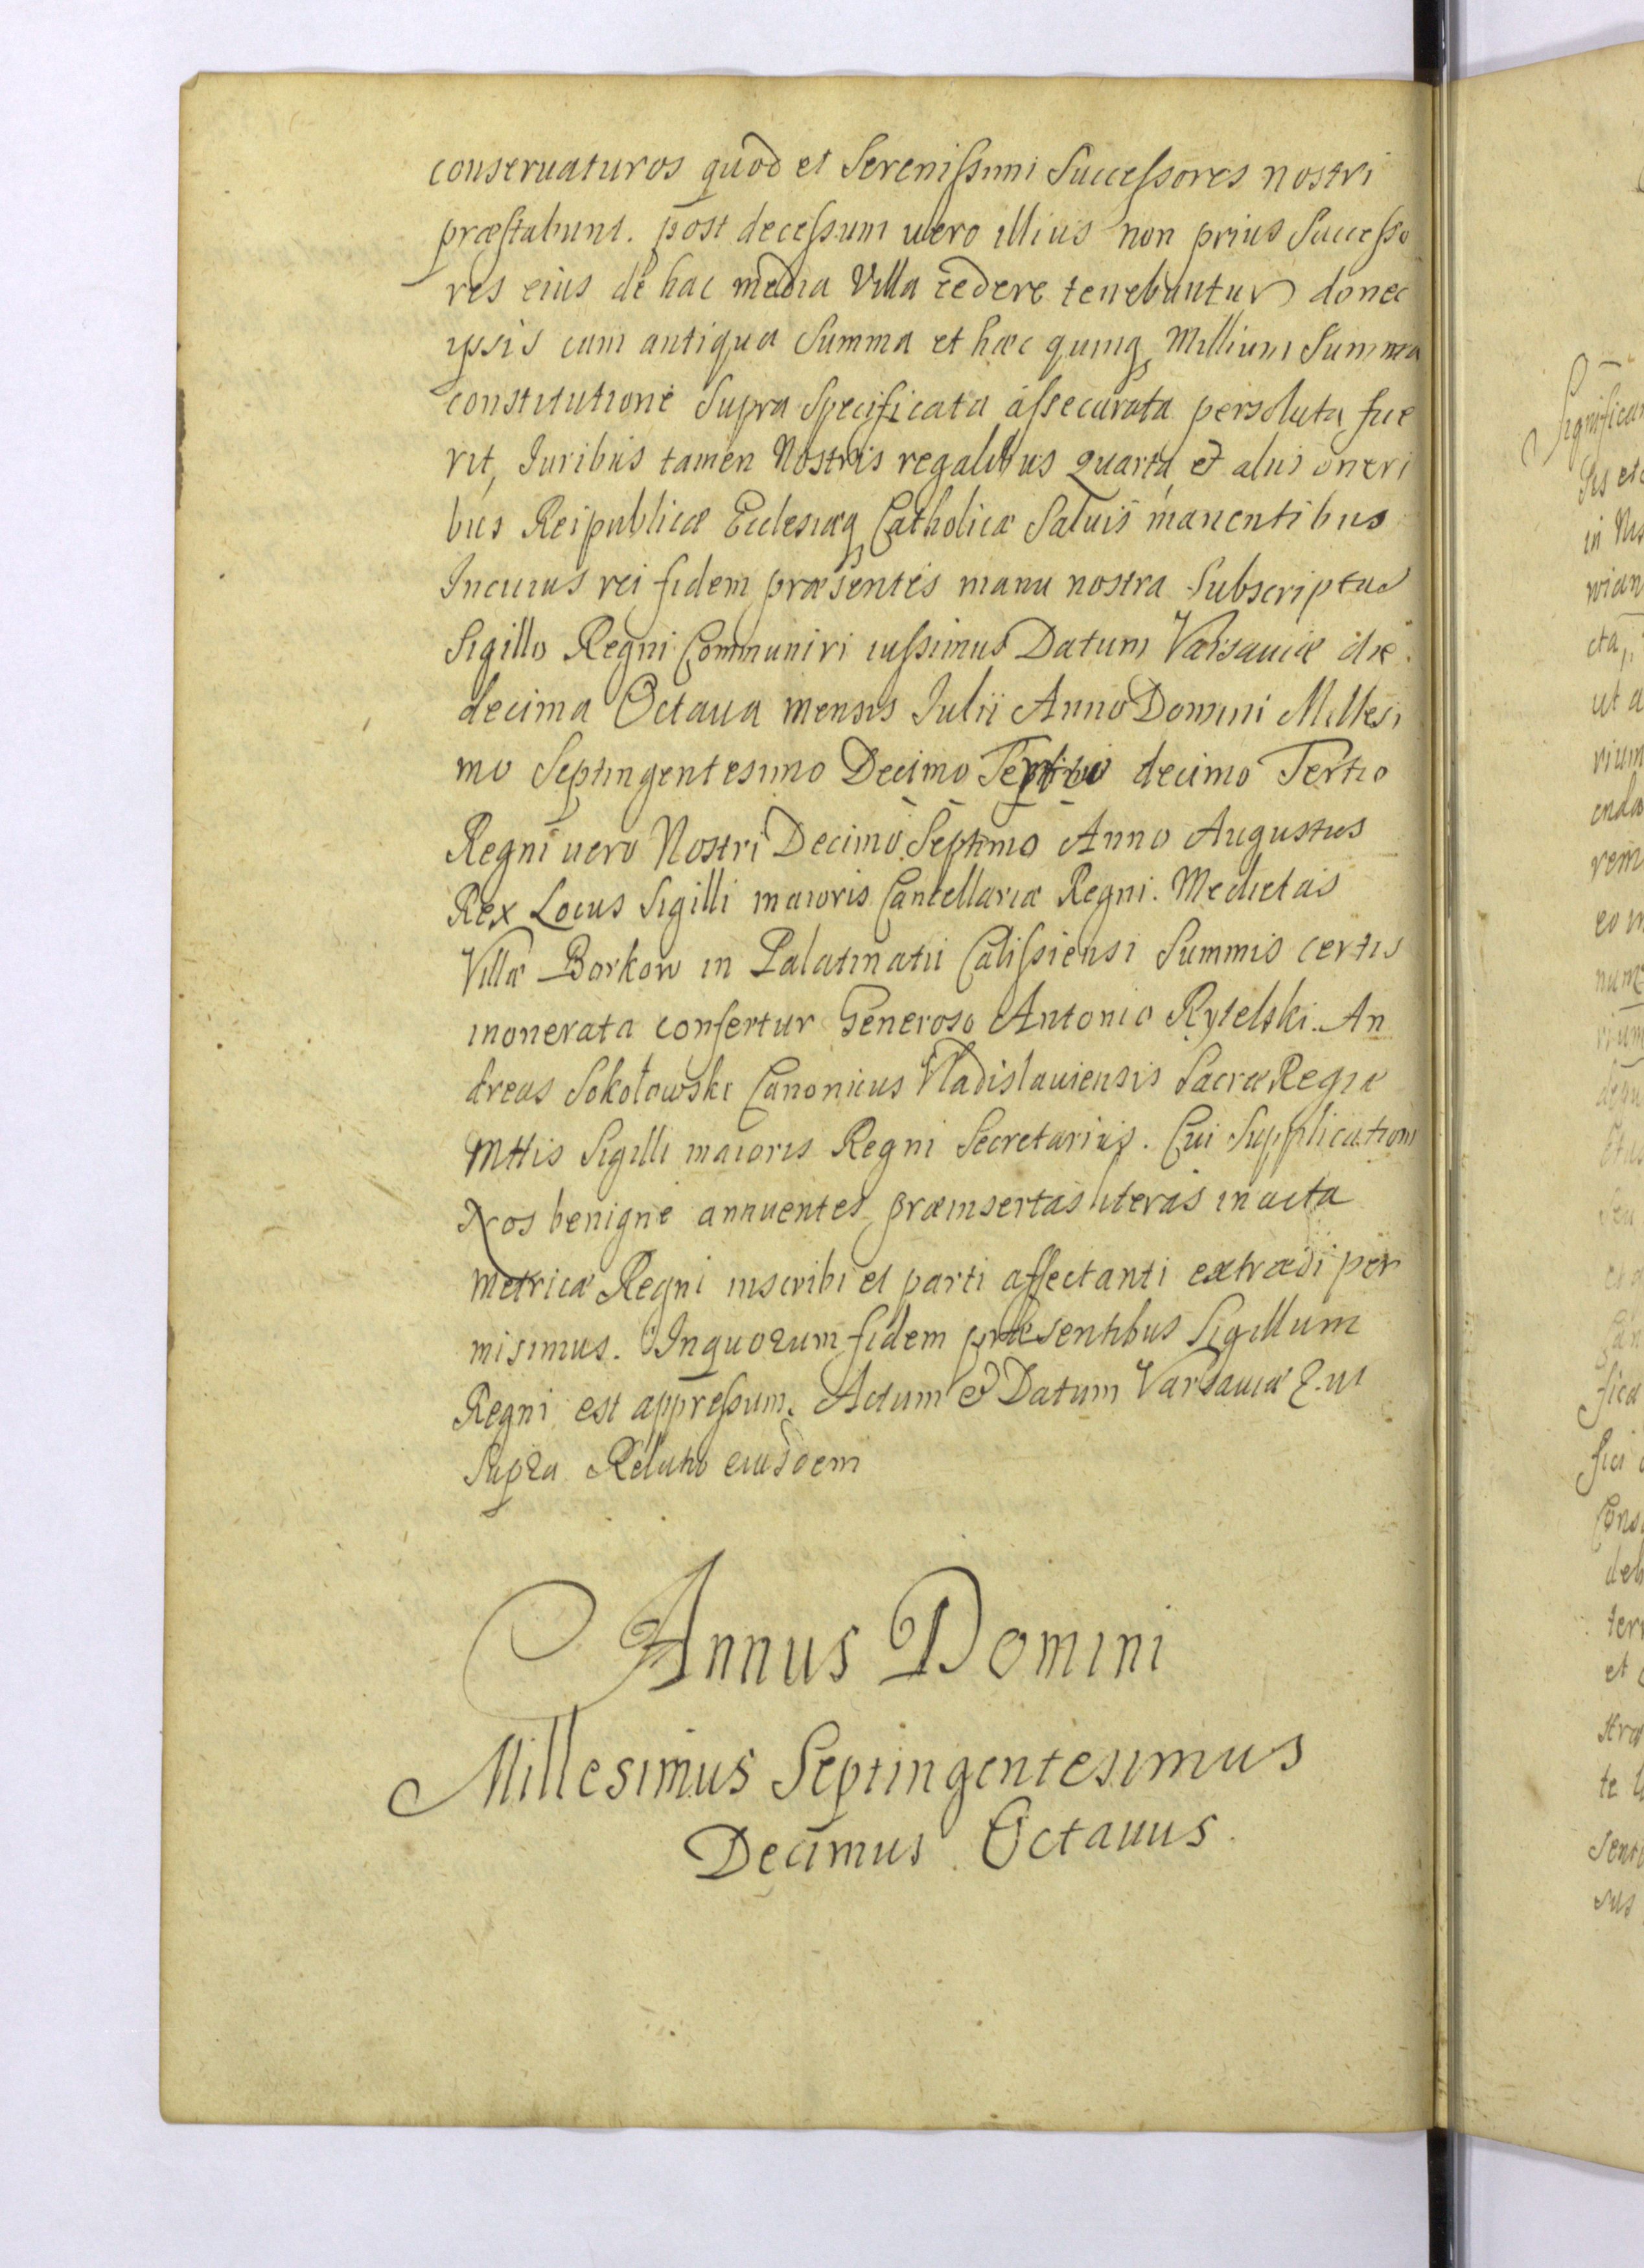 conseruaturos quod et Serenissimi Successores nostri
præstabunt. post decessum uero illius non prius Successo
res eius de hac media Villa cedere tenebuntur donec
ipsis cum antiqua Summa et hæc quinq Millium Summa
constitutione Supra Specificata assecurata persoluta fue
rit, Iuribus tamen Nostris regalibus quarta et aliis oneri
bus Reipublicæ Ecclesiæq Catholicæ Saluis manentibus
Incuius rei fidem præsentes manu nostra Subscriptas
Sigillo Regni Communiri iussimus Datum Varsauiæ die
decima Octaua mensis Iulii Anno Domini Millesi
mo Septingentesimo Decimo decimo Tertio
Regni uero Nostri Decimo Septimo Anno Augustus
Rex Locus Sigilli maioris Cancellariæ Regni. Medietas
Villæ Borkow in Palatinatu Calissiensi Summis certis
inonerata confertur Generoso Antonio Rytelski. An
dreas Sokołowski Canonicus Vladislauiensis Sacræ Regiæ
Mttis Sigilli maioris Regni Secretarius. Cui Supplicationi
Nos benigne annuentes præinsertas literas in acta
metricæ Regni inscribi et parti affectanti extradi per
misimus. In quorum fidem præsentibus Sigillum
Regni est appressum. Actum et Datum Varsauiæ ut
Supra Relatio eiusdem
Annus Domini
Millesimus Septingentesimus
Decimus Octauus.
Significa
in
wian
cta,
ut a
rium
enda
rem
eo
fica
Cons
deb
ter
et
te
senti
sus